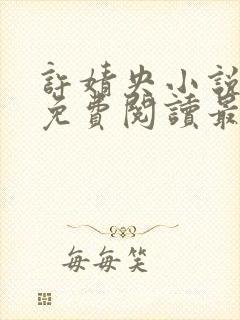 許婧央小說
免費閱讀最
每每笑